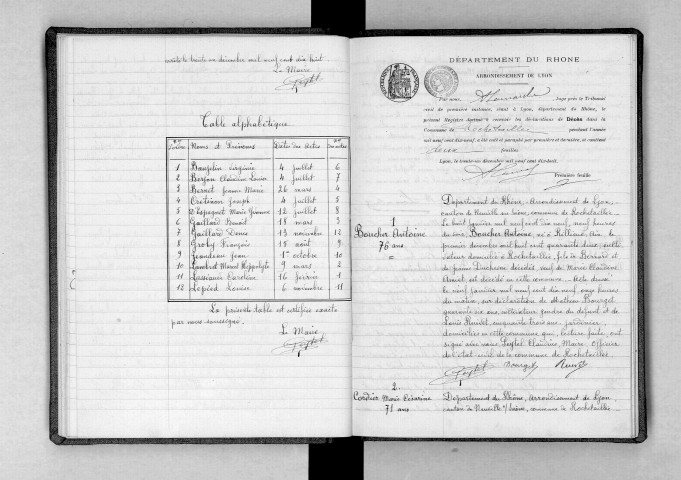 arrêté le trente un décembre mil neuf cent dix huit.
Le Maire
Peytel
Table alphabétique
Noms et Prénoms Dates des Actes
1 Baujelin Eugénie 4 juillet 6
2 Berjon Claudius Louis 4 juillet 7
3 Bernet Jeanne Marie 26 mars 4
4 Cretinon Joseph 4 juillet 5
5 D'Espagnet Marie Jeanne 12 juillet 8
6 Gaillard Benoit 18 mars 3
7 Gaillard Denis 13 novembre 12
8 Groby François 15 août 9
9 Jeandeau Jean 1er octobre 10
10 Lambret Marcel Hippolyte 9 mars 2
11 Lassiaux Caroline 16 février 1
12 Lepied Louise 6 novembre 11
La présente table est certifiée exacte
par nous soussigné.
Le Maire
Peytel
DÉPARTEMENT DU RHONE
ARRONDISSEMENT DE LYON
Par nous, juge près le Tribunal
civil de première instance, séant à Lyon, département du Rhône, le
présent Registre destiné à recevoir les déclarations de Décès dans la
Commune de Rochetaillée pendant l'année
mil neuf cent dix-neuf, a été coté et paraphé par première et dernière, et contient
feuilles
Lyon, le trente-un décembre mil neuf cent dix-huit.
Première feuille
1
Boucher Antoine
76 ans
Département du Rhône, Arrondissement de Lyon,
canton de Neuville sur Saône, commune de Rochetaillée.
Le huit janvier mil neuf cent dix neuf, neuf heures
du soir, Boucher Antoine, né à Rillieux, Ain, le
premier décembre mil huit cent quarante deux,
cultivateur domicilié à Rochetaillée, fils de Bernard et
de Jeanne Duchesne décédés, veuf de Marie Claudine
est décédé en cette commune. Acte dressé
le neuf janvier mil neuf cent dix neuf, onze heures
du matin, sur déclaration de Mathieu Bourget,
quarante six ans, cultivateur, gendre du défunt et de
Louis cinquante trois ans, jardinier,
domiciliés en cette commune qui, lecture faite, ont
signé avec nous, Peytel Claudius, Maire, officier
de l'état civil de la commune de Rochetaillée.
Peytel Bourget
2.
Cordier Marie Césarine
71 ans
Département du Rhône, Arrondissement de Lyon,
canton de Neuville s/Saône, commune de Rochetaillée.